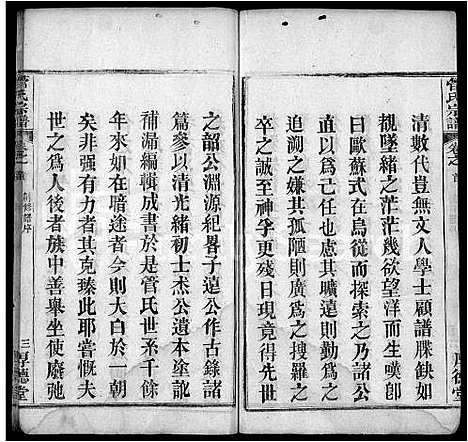 管氏宗譜
卷之首
清數代豈無文人學士顧譜牒缺如
覩墜緒之茫茫幾欲望洋而生嘆即
曰歐蘇式在烏從而探索之乃諸公
追溯之嫌其孤陋則廣為之搜羅之
卒之誠至神孚更殘日
之韶公淵源紀畧子遠公作古錄諸
篇參以清光緒初士杰公遺本塗訛
補漏編輯成書於是管氏世系千餘
年來如在暗途者無何得以於一朝
矣非強有力者其克臻此耶嘗慨夫
世之為人後者族中善舉坐使廢弛
管氏宗譜
卷之首
三
厚德堂
厚德堂